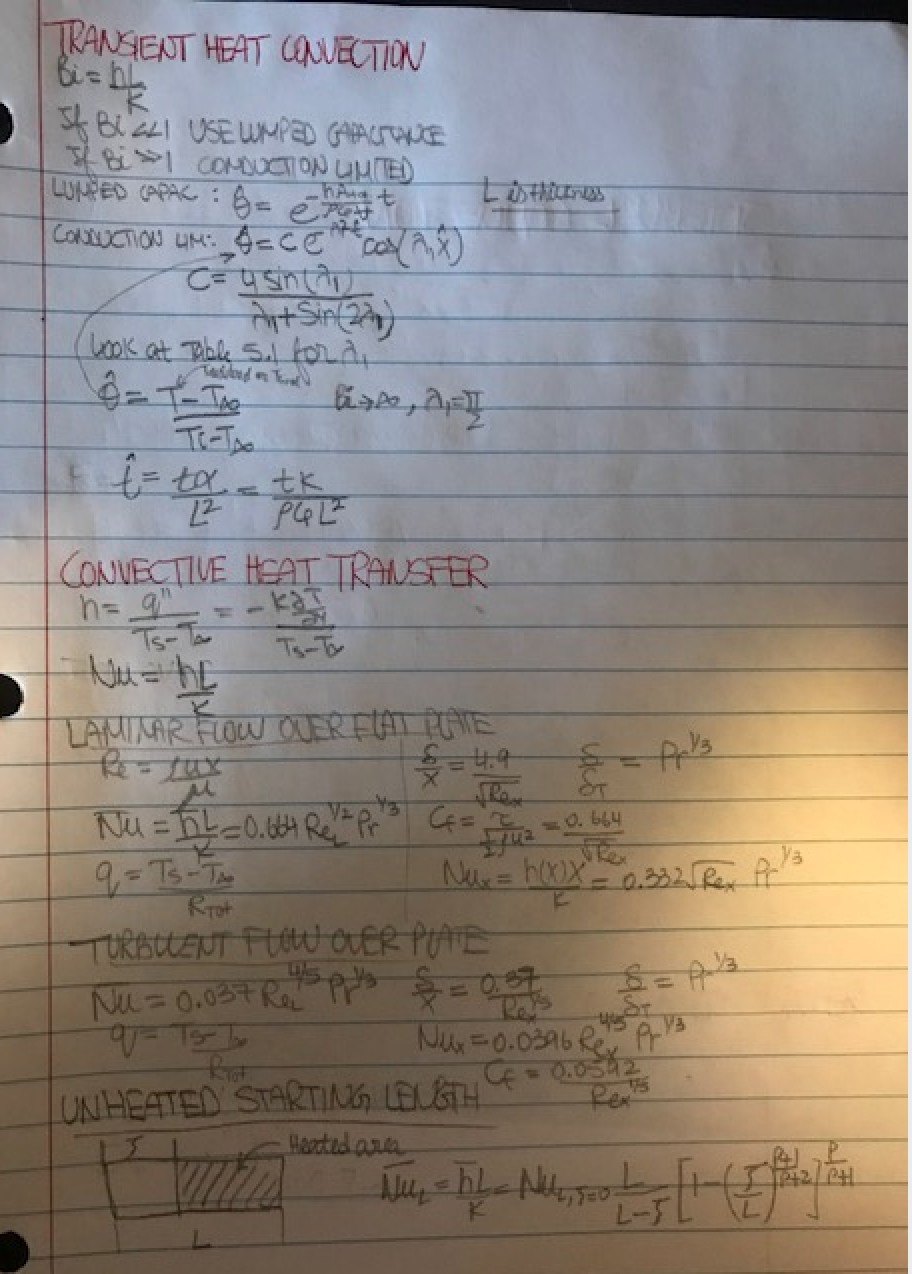 TRANSIENT HEAT CONVECTION
Bi = hL/K
If Bi <<1 USE LUMPED CAPACITANCE
If Bi >>1 CONDUCTION LIMITED
LUMPED CAPAC: θ̂ = e^- t L is thickness
CONDUCTION LIM: θ̂ = C e cos(λ₁x̂)
C = 4 sin(λ₁)/λ₁+Sin(2λ₁)
Look at Table 5.1 for λ₁
θ̂ = T-T∞/Ti-T∞ Bi→∞, λ₁=π/2
t̂ = tα/L² = tK/ρCpL²
CONVECTIVE HEAT TRANSFER
h = q"/Ts-T∞ = -K∂T/∂y/Ts-T∞
Nu = hL/K
LAMINAR FLOW OVER FLAT PLATE
Re = ρux/μ δ/x = 4.9/√Rex δ/δT = Pr^1/3
N̄u = h̄L/K = 0.664 ReL^1/2 Pr^1/3 Cf = τ/½ρu² = 0.664/√Rex
q = Ts-T∞/RTot Nux = h(x)x/K = 0.332√Rex Pr^1/3
TURBULENT FLOW OVER PLATE
N̄u = 0.037 ReL^4/5 Pr^1/3 δ/x = 0.37/Rex^1/5 δ/δT = Pr^1/3
q = Ts-T∞/RTot Nux = 0.0396 Rex^4/5 Pr^1/3
Cf = 0.0592/Rex^1/5
UNHEATED STARTING LENGTH
ξ Heated area
N̄uL = h̄L/K = NuL,ξ=0 L/L-ξ [1-(ξ/L)^P+1/P+2]^P/P+1
L